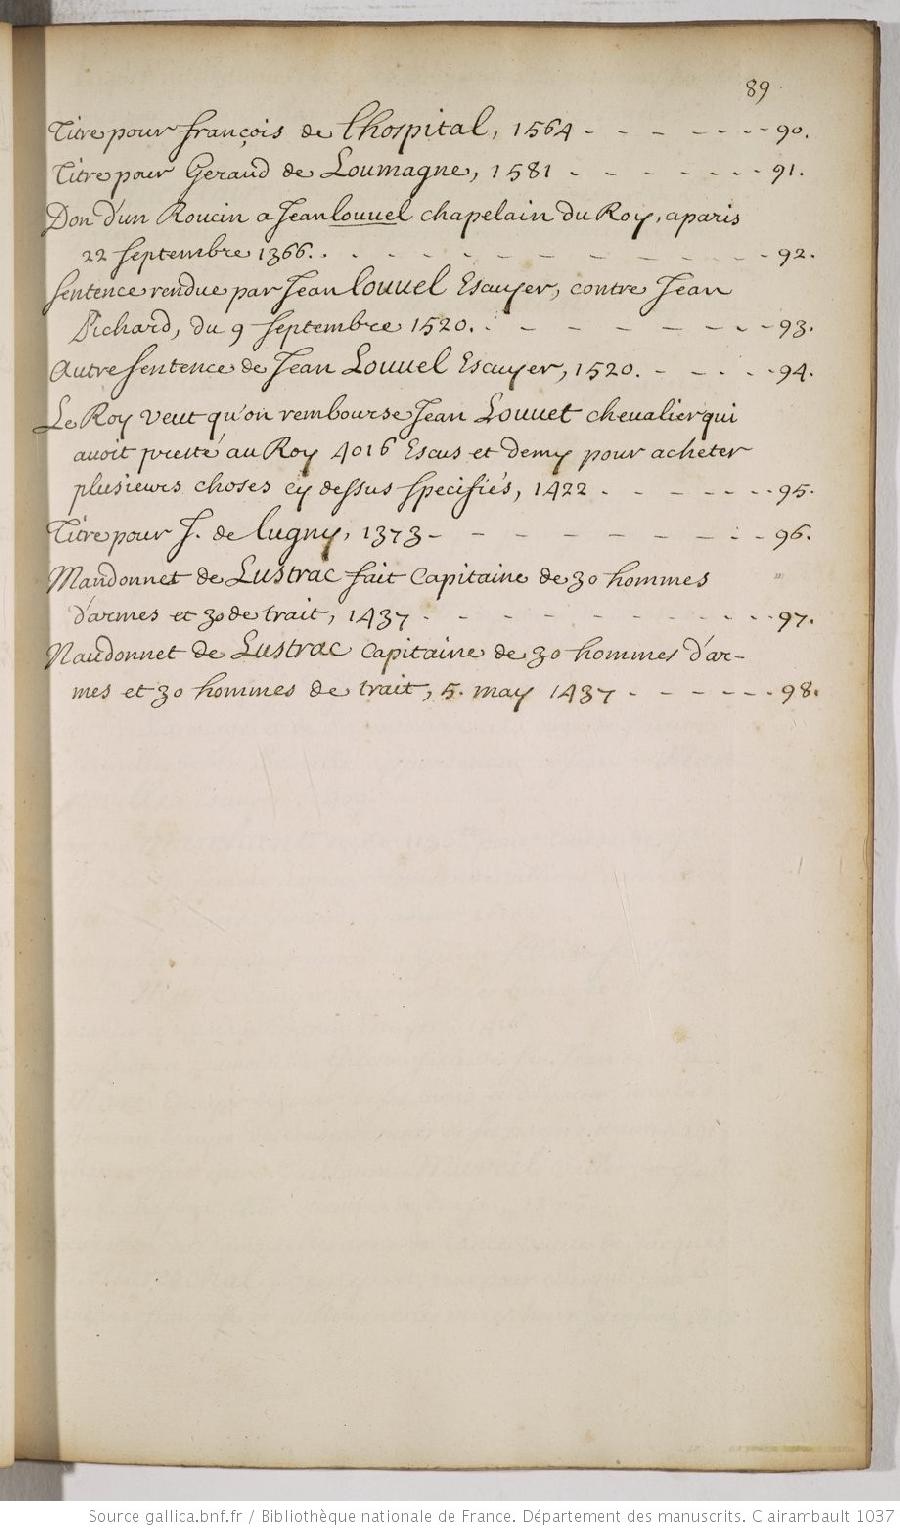 89
Titre pour françois de lhospital, 1564 - - - - - - - - 90.
Titre pour Geraud de Loumagne, 1581 - - - - - - - - 91.
Don d'un Roucin a Jean louuel chapelain du Roy, a paris
22 septembre 1366. . - - - - - - - - - - - 92.
sentence rendue par Jean louuel Escuyer, contre Jean
Pichard, du 9 septembre 1520. - - - - - - - - 93.
Autre sentence de Jean Louuel Escuyer, 1520. - - - - - 94.
Le Roy veut qu'on rembourse Jean Louuet chevalier qui
auoit presté au Roy 4016 Escus et demy pour acheter
plusieurs choses cy dessus specifiés, 1422 - - - - - - 95.
Titre pour J. de lugny, 1373 - - - - - - - - - - 96.
Maudonnet de Lustrac fait Capitaine de 30 hommes
d'armes et 30 de trait, 1437 - - - - - - - - - - 97.
Naudonnet de Lustrac Capitaine de 30 hommes d'ar-
mes et 30 hommes de trait, 5. may 1437 - - - - - - 98.
Source gallica.bnf.fr / Bibliothèque nationale de France. Département des manuscrits. Clairambault 1037